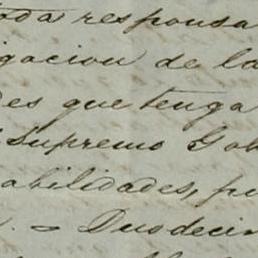 toda responsa
igacion de la
des que tenga
Supremo Gob
abilidades, pu
. = Duodecim